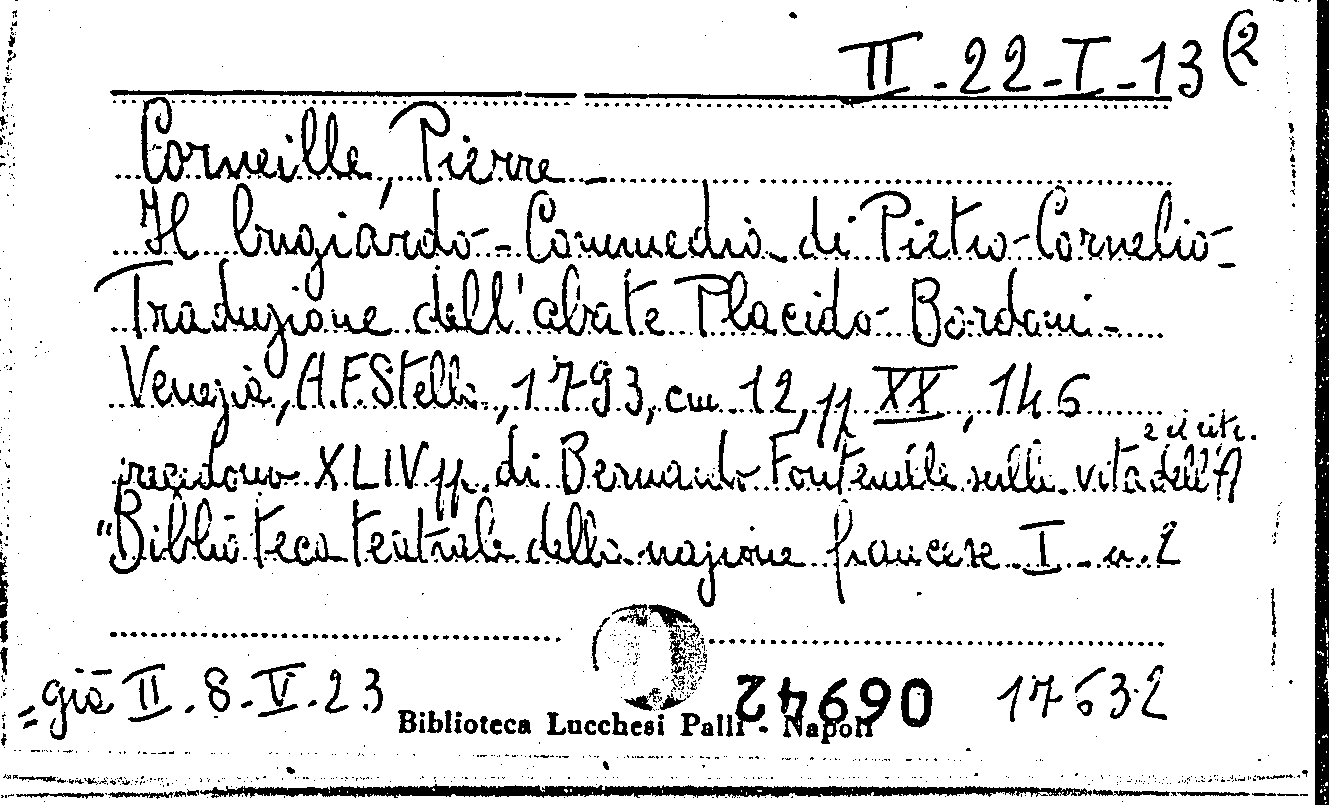 II - 22 - I - 13 (2
Corneille, Pierre -
Il bugiardo - Commedia di Pietro Cornelio -
Traduzione dell'abate Placido Bordoni -
Venezia, A. F. Stella, 1793, cm 12, pp XX, 146
precedono XLIV pp. di Bernardo Fontenelle sulla vita dell'A
"Biblioteca teatrale della nazione francese I - n. 2
= già II - 8 - V - 23
06942
17632
Biblioteca Lucchesi Palli - Napoli